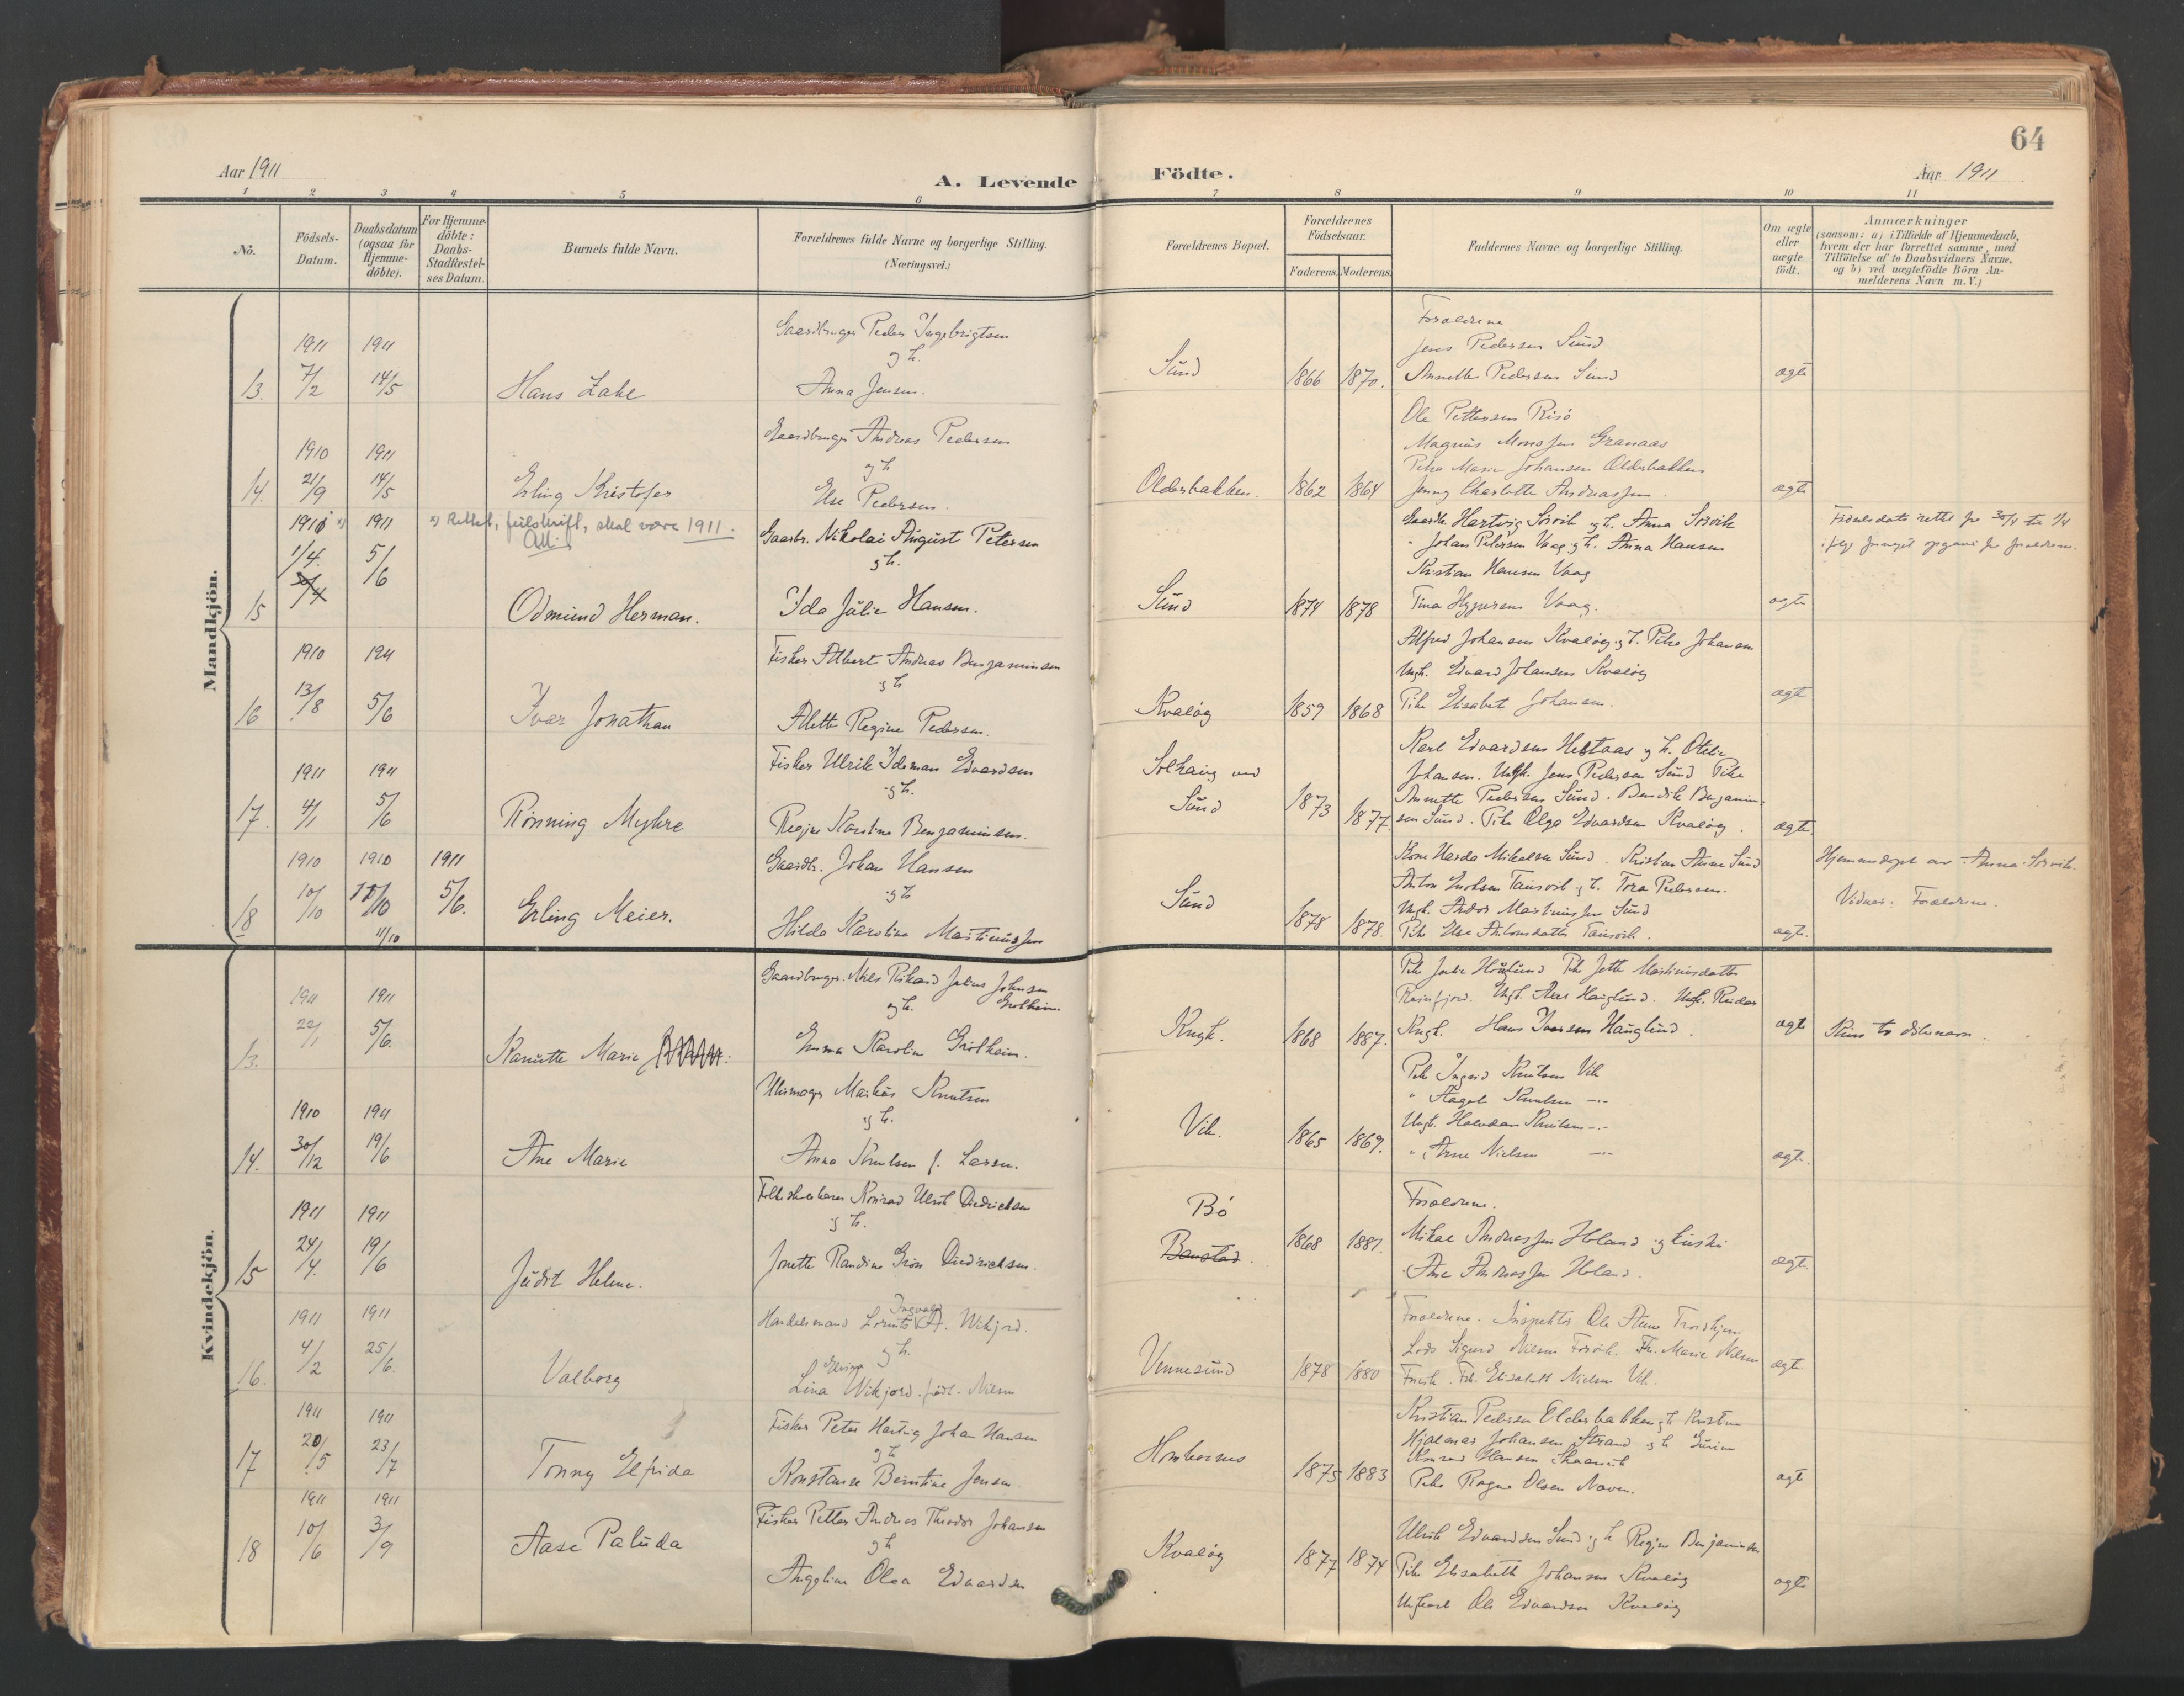 64
Aar 1911
A. Levende Födte.
Aar 1911
1 2 3 4 5 6 7 8 9 10 11
No.
Födsels-Datum.
Daabsdatum (ogsaa for Hjemme-döbte).
For Hjemme-döbte: Daabs-Stadfæstel-ses Datum.
Barnets fulde Navn.
Forældrenes fulde Navne og borgerlige Stilling. (Næringsvei.)
Forældrenes Bopæl.
Forældrenes Födselsaar.
Faderens. Moderens.
Faddernes Navne og borgerlige Stilling.
Om ægte eller uægte födt.
Anmærkninger
(saasom: a) i Tilfælde af Hjemmedaab,
hvem der har forrettet samme, med
Tilföielse af to Daabsvidners Navne.
og b) ved uægtefödte Börn An-
melderens Navn m. V.)
Mandkjön.
13. 1911 7/2 1911 14/5 Hans Zahl
Gaardbruger Peder Ingebrigtsen
og h.
Anna Jensen.
Sund 1866 1870.
Forældrene
Jens Pedersen Sund
Annette Pedersen Sund
ægte
14. 1910 21/9 1911 14/5 Erling Kristofer
Gaardbruger Andreas Pedersen
og h
Else Pedersen.
Olderbakken. 1862 1864
Ole Pettersen Risö
Magnus Monssen Granaas
Petra Marie Johansen Olderbakken
Jenny Charlotte Andreassen.
ægte
15 1910 x) 1/4. 30/4 1911 5/6
x) Rettet, feilskrift, skal være 1911.
Odmund Herman.
Gaardbr. Nikolai August Petersen
og h.
Ida Julie Hansen.
Sund 1874 1878
Gaardbr. Hartvig Sørvik og h. Anna Sørvik
" Johan Pedersen Vaag og h. Anna Hansen
Kristian Hansen Vaag
Tina Vaag.
ægte
Fødselsdato rettet fra 30/4 til 1/4
ifølge opgave fra forældrene.
16 1910 13/8 1911 5/6 Ivar Jonathan
Fisker Albert Andreas Benjaminsen
og h
Alette Regine Pedersen.
Kvaløy 1859 1868
Alfred Johansen Kvaløy og h. Petra Johansen
Ungk. Edvard Johansen Kvaløy
Pike Elisabet Johansen.
ægte
17. 1911 4/1 1911 5/6 Rønning Myhre
Fisker Ulrik Edvardsen
og h.
Regine Karoline Benjaminsen.
Solhaug ved
Sund 1873 1877.
Karl Edvardsen Hestaas og h. Otelie
Johansen. Ungk. Jens Pedersen Sund Pike
Annette Pedersen Sund. Bendik Benjamin-
sen Sund. Pike Olga Edvardsen Kvaløy.
ægte.
18 1910 10/10 1910 11/10 1911 5/6. Erling Meier.
Gaardbr. Johan Hansen
og h
Hilda Karoline Martinussen
Sund 1878 1878.
Kone Mikalsen Sund. Kristian Sund
Anton og h. Tora Pedersen.
Ungk. Andor Martinussen Sund
Pike Else Antonsdatter
ægte.
Hjemmedøpt av Anna Sørvik.
Vidner: Forældrene.
Kvindekjön.
13. 1911 22/1 1911 5/6. Kanutte Marie
Gaardbruger. Nils Rikard Julius Johnsen
Grolheim.
og h.
Emma Karoline Grolheim.
1868 1887.
Pike Julie Hauglund Pike Jette Martinusdatter
Reinfjord. Ungk. Hauglund. Ungk. Reidar
Hans Iversen Hauglund.
ægte
Kun to døbenavn.
14. 1910 30/12 1911 19/6 Ane Marie
Uhrmager Markus Knutsen
og h.
Anna Knutsen f. Larsen.
Vik. 1865 1869.
Pike Ingrid Knutsen Vik
" Aagot Knutsen -"-
Ungk. Halvdan Knutsen -"-
" Arne Nielsen -"-
ægte.
15 1911 24/4. 1911 19/6 Judit Helene.
Konrad Ulrik Diedrichsen
og h.
Jonette Randine Grøn Diedrichsen.
Bö
Baustad. 1868 1881.
Forældrene.
Mikal Andreassen Holand og hustru
Ane Andreassen Holand.
ægte.
16. 1911 4/2 1911 25/6. Valborg
Handelsmand Lorents Ingvald A. Wikjord.
og h.
Lina Elvine Wikjord. født. Nilsen
Vennesund 1878 1880
Forældrene. Inspektør Ole Trondhjem
Lods Sigurd Nilsen Forvik. Frk. Marie Nilsen
Forvik. Frk. Elisabeth Nielsen Vik.
ægte.
17 1911 20/5 1911 23/7 Tonny Elfrida
Fisker Peter Hartvig Johan Hansen
og h
Konstanse Berntine Jensen.
Homhornes 1875 1883
Kristian Pedersen Olderbakken og h Kristine
Hjalmar Johansen Strand og h
Konrad Hansen
Pike Ragna Olsen Naven.
ægte
18 1911 10/6 1911 3/9 Aase Paluda
Fisker Petter Andreas Theodor Johansen
og h
Angeline Olea Edvardsen
Kvaløy 1877 1874
Ulrik Edvardsen Sund og h Regine Benjaminsen
Pike Elisabeth Johansen Kvaløy
Ungkarl Ole Edvardsen Kvaløy
ægte